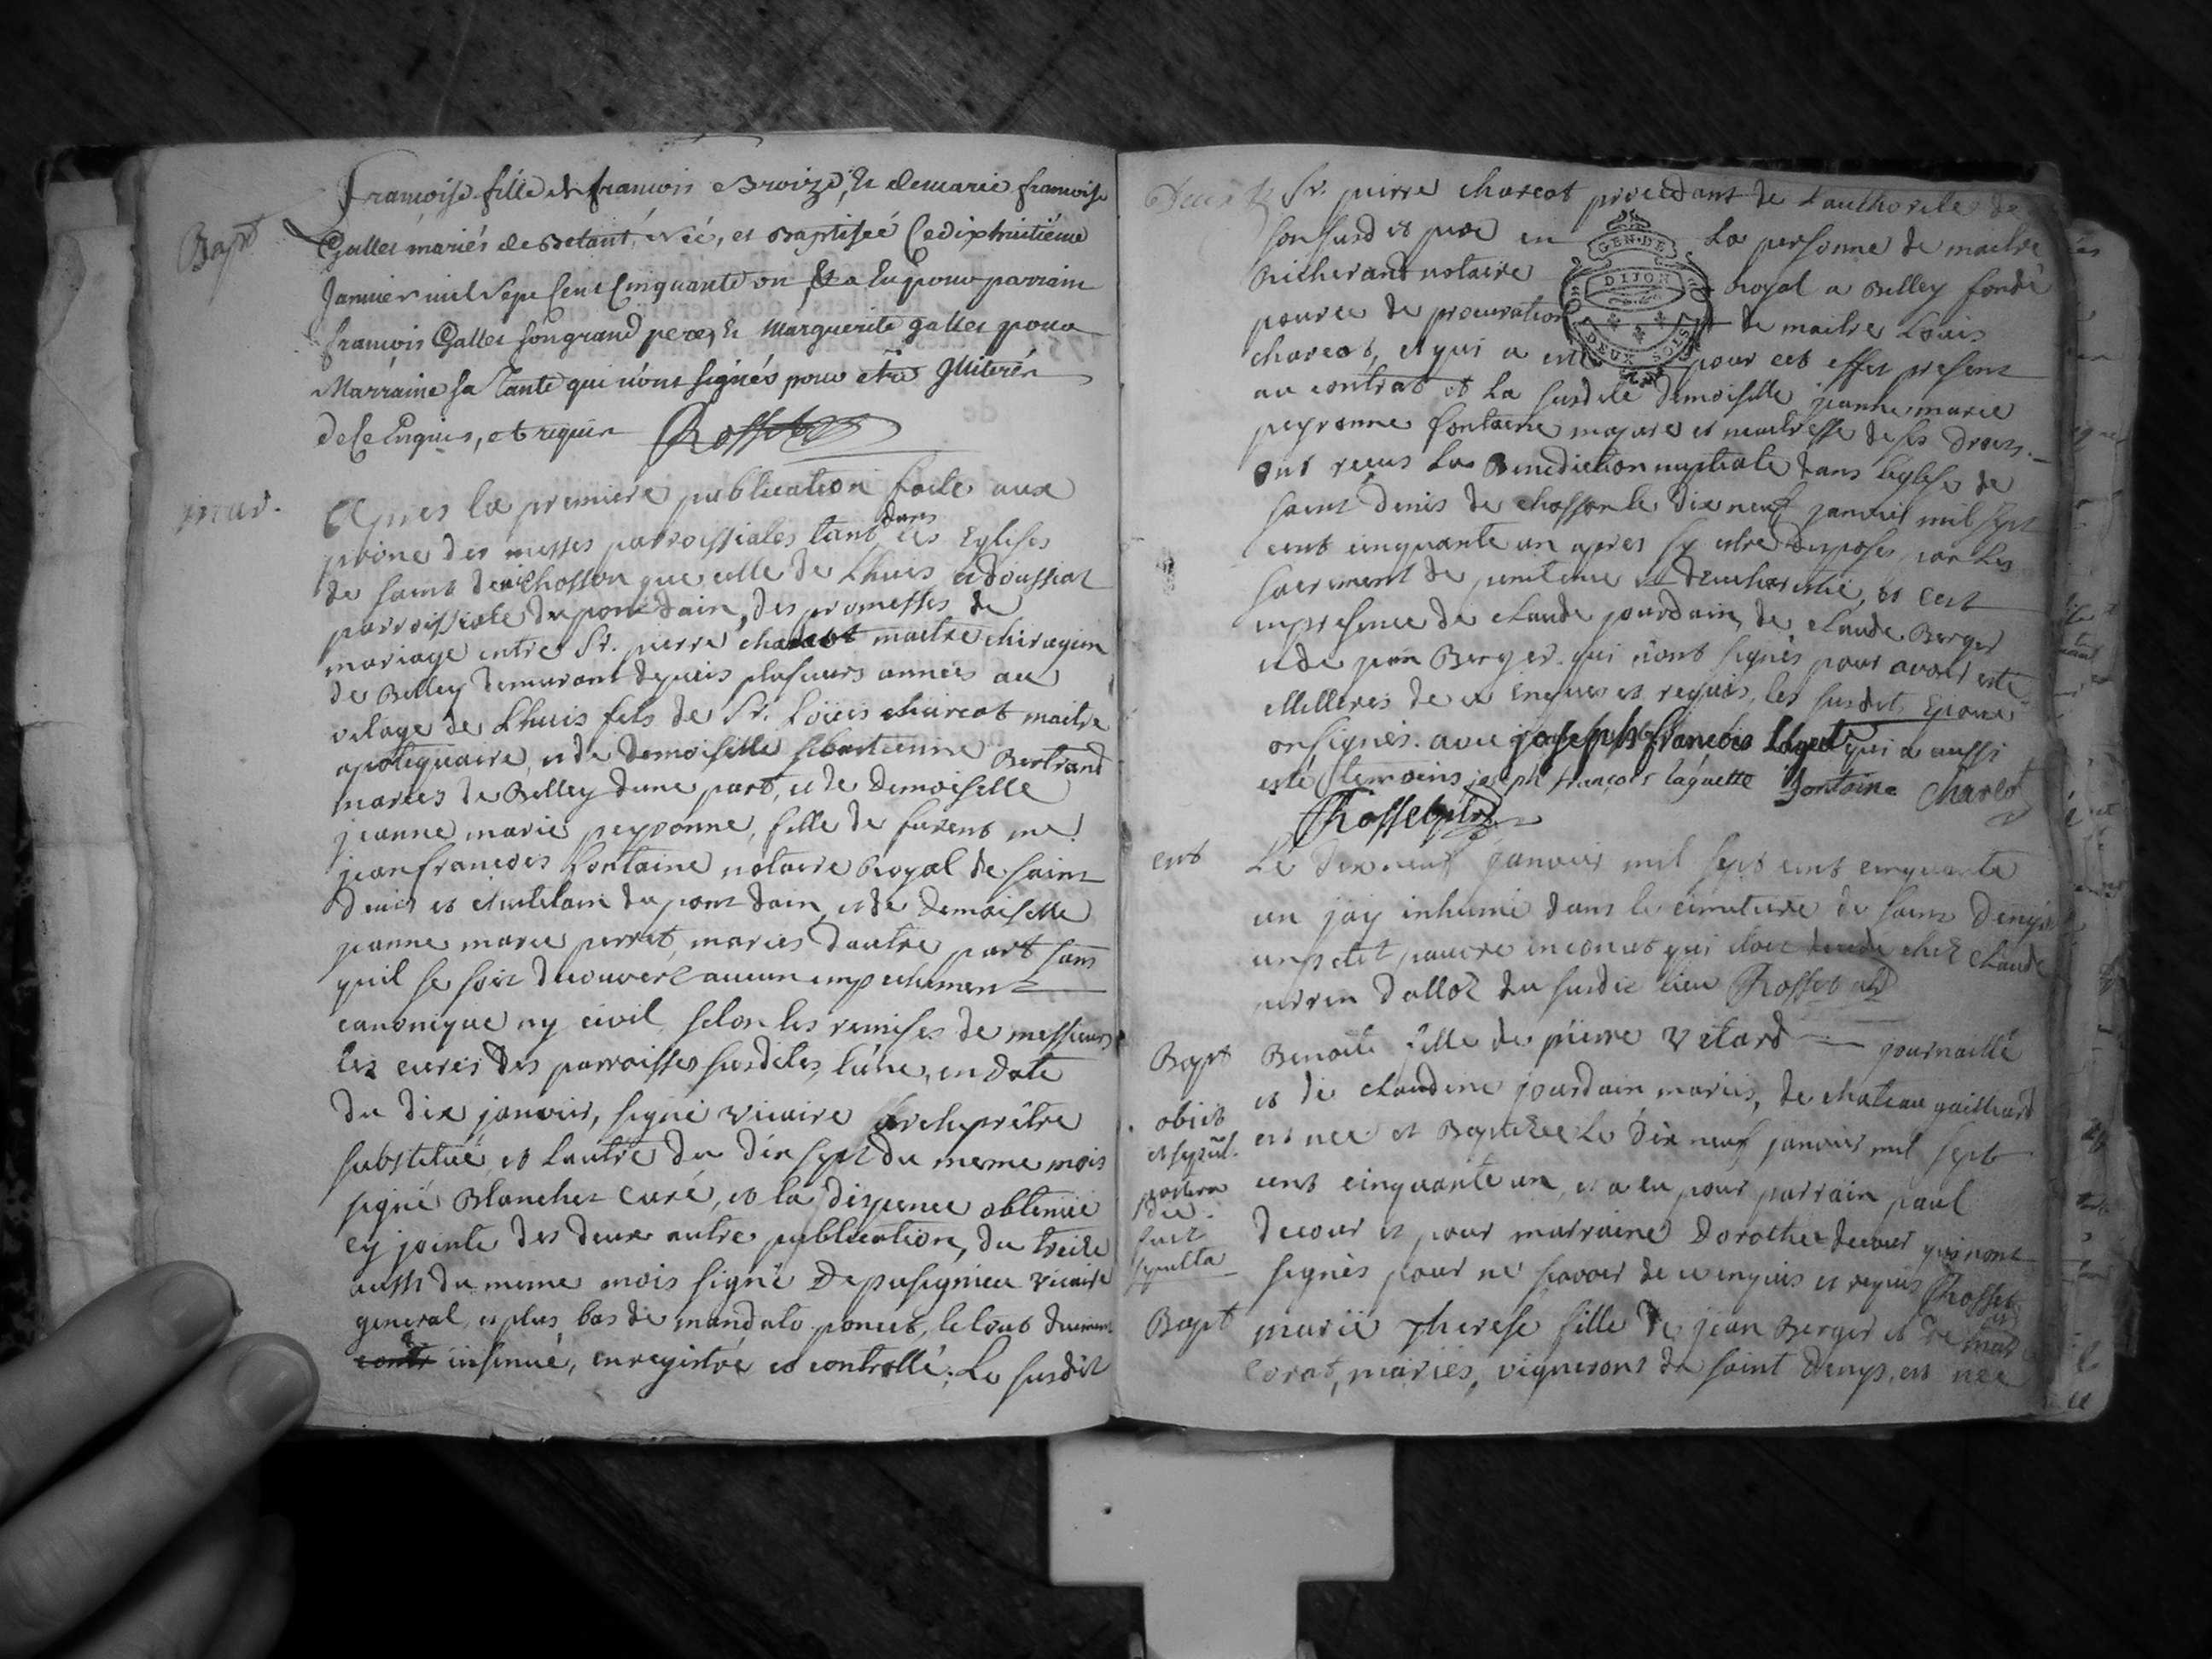 Bapt
françoise fille de françois Broize, & de marie françoise
Gallet mariés de Betant, née, et Baptiseé Ce dixhuitiéme
Janvier mil Sept Cent Cinquante un, Et a Eu pour parrain
françois Gallet son grand pere, & Marguerite gallet pour
Marraine sa Tante qui n'ont signés pour etre Illiterés
de Ce Enquis, et requis Rosset
mar.
Apres la premiere publication faite aux
prone des messes parroissiales tant dans les Eglises
de saint denis Chosson que celle de Lhuis et doussiat
parroissiale du pont dain, des promesses de
mariage entre Sr. pierre charcot maitre chirugien
de Belley demurant depuis plusieurs annees au
vilage de Lhuis fils de Sr. Loüis charcot maitre
apotiquaire, et de demoiselle sebastienne Bertrand
maries de Belley dune part, et de demoiselle
jeanne marie peyronne, fille de furent me
jean françois fontaine notaire Royal de saint
denis et chatelain du pont dain, et de demoiselle
jeanne marie perret, maries dautre part sans
quil se soit decouvert aucun empechement
canonique ny civil, selon les remises de messieurs
les cures des parroisses susdites, lune, en date
du dix janvier, signé vicaire Archiprêtre
substitué et lautre du dix sept du meme mois
signé Blanchet Curé, et la dispence obtenüe
cy jointe des deux autre publication, du treize
aussi du meme mois signé depusignieu vicaire
general, et plus bas de mandato poncet, le tout duement
insinué, enregistré et controllé. Le susdit
Sr. pierre charcot procedant de Lauthorité de
son susdit pere en la personne de maitre
Richerand notaire royal a Belley fondé
GEN. DE
DIJON
DEUX SOLS
pource de procuration de maitre Louis
charcot, et qui a esté pour cet effet present
au contrat et la susdite demoiselle jeanne marie
peyronne fontaine majure et maitresse de ses droits.
ont reçus la Benediction nuptiale dans leglise de
saint denis de chosson le dix neuf janvier mil sept
cent cinquante un apres sy estre disposes par les
sacrement de penitence et deucharistie, et cest
en presence de claude jourdain, de claude Berger
et de jean Berger qui n'ont signés pour avoir esté
illiteres de ce enquis et requis, les susdit Epoux
on signés. avec joseph françois Laguete qui a aussi
esté temoins joseph françois laguette fontaine charcot
Rosset
ent
Le dix neuf janvier mil sept cent cinquante
un jay inhumé dans le cimetiere de saint denys
un petit pauvre inconut qui etoit chez claude
perrin dalloz du susdit lieu Rosset
Bapt
obiit
et sepul.
postera
die
fuit
sepulta
Benoite fille de pierre Vitard journaillé
et de claudine jourdain mariés, de chateau gaillard
est née et Baptizée Le dix neuf janvier mil sept
cent cinquante un, et a eu pour parrain paul
decour et pour marraine Dorothee decour qui nont
signés pour ne scavoir de ce enquis et requis Rosset
Bapt
marie therese fille de jean Berger et de
Corat, mariés, vignerons de saint denys, est née